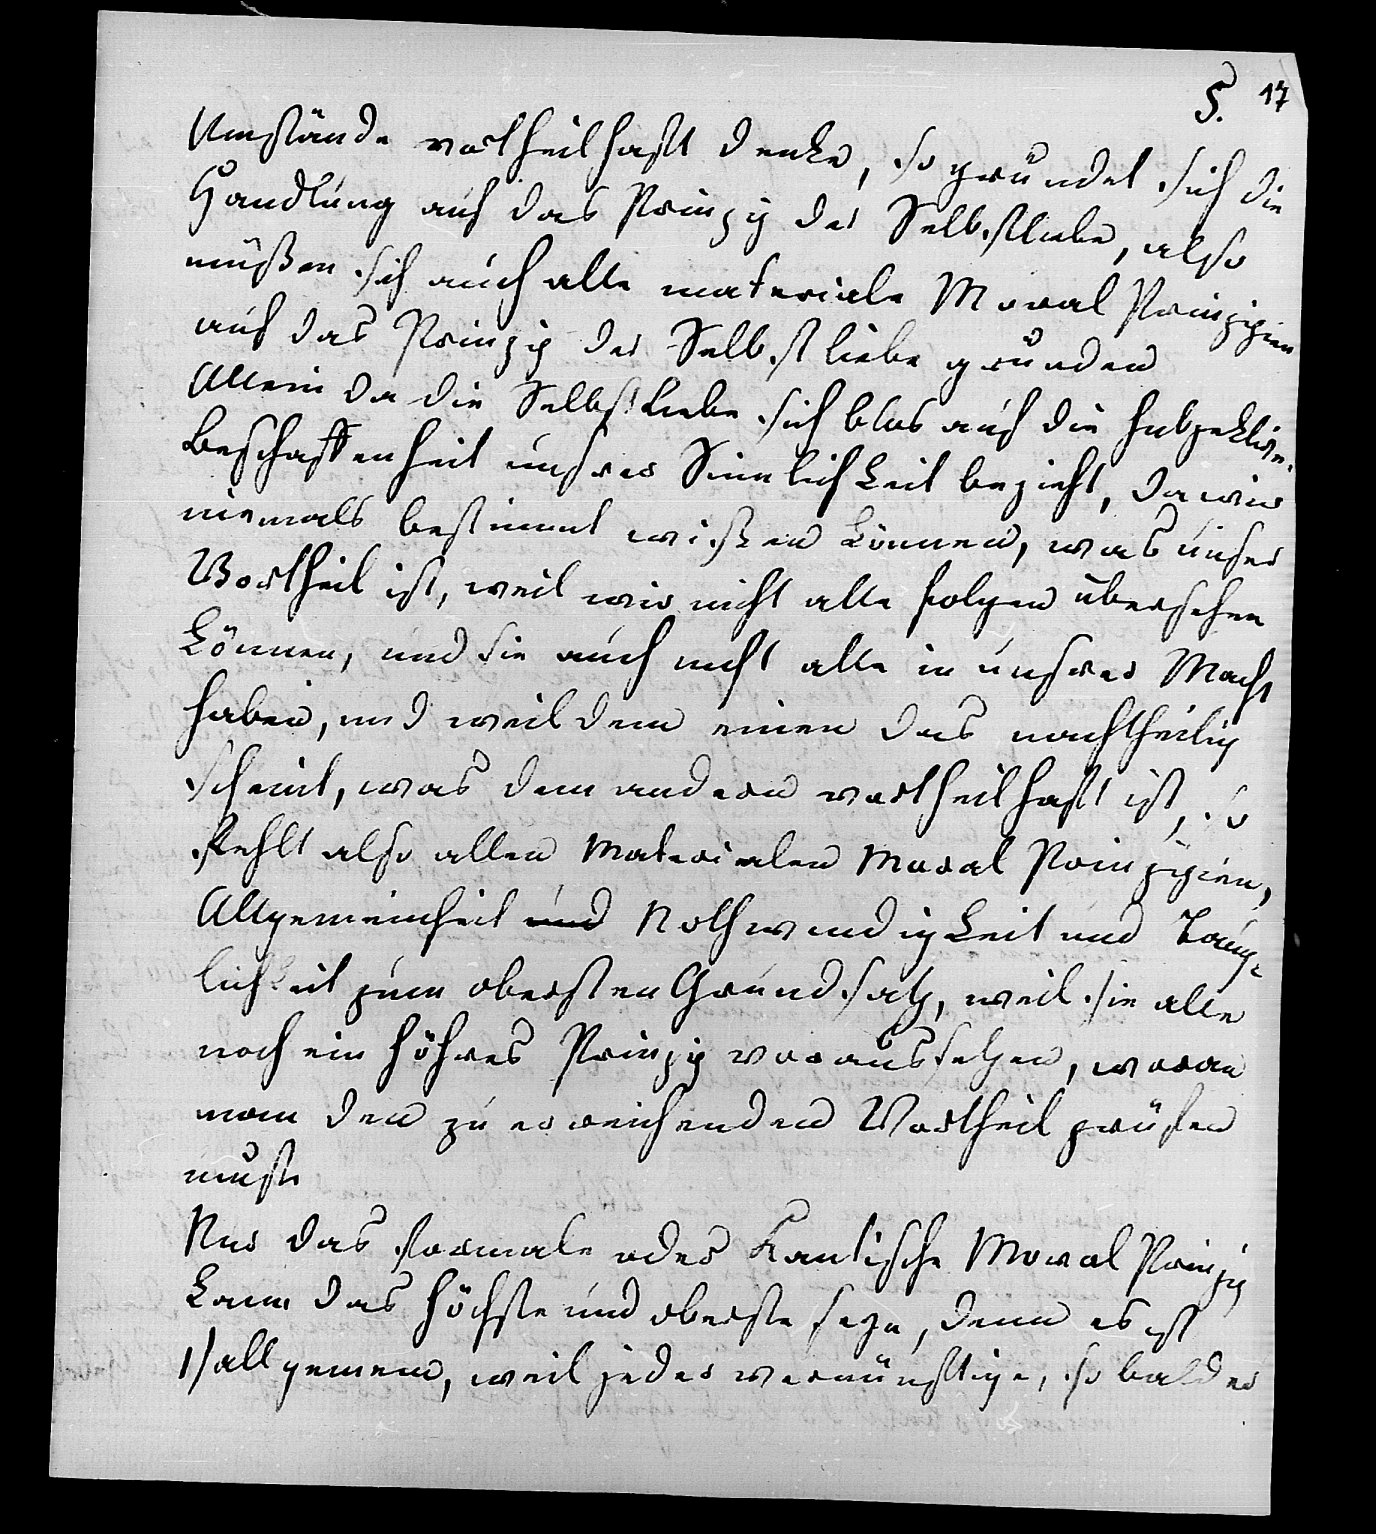 5. 17
Umstände vortheilhaft denke, so gründet sich die
Handlung auf das Prinzip der Selbstliebe, also
müßen sich auch alle materiale Moral Prinzipien
auf das Prinzip der Selbstliebe gründen
Allein da die Selbstliebe sich blos auf die subjektive
Beschaffenheit unsrer Sinnlichkeit bezieht, da wir
niemals bestimmt wißen können, was unser
Vortheil ist, weil wir nicht alle folgen übersehen
können, und sie auch nicht alle in unsrer Macht
haben, und weil dem einen das nachtheilig
scheint, was dem andern vortheilhaft ist, so
fehlt also allen Materialen Moral Prinzipien,
Allgemeinheit und Nothwendigkeit und Taug-
lichkeit zum obersten Grundsatz, weil sie alle
noch ein höhres Prinzip voraussetzen, woran
man den zu erreichenden Vortheil prüfen
muste
Nur das formale oder Kantische Moral Prinzip
kann das höchste und oberste seyn, denn es ist
1) allgemein, weil jeder vernünftige, so bald er